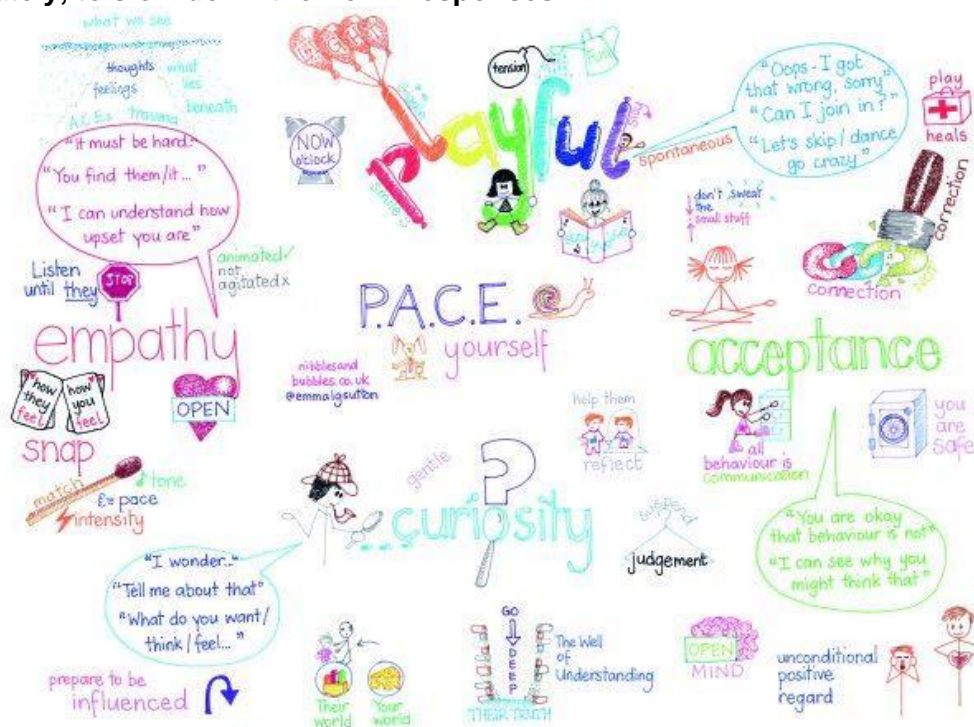 what we see
thoughts
feelings
what
lies
beneath
A.C.Es
trauma
"It must be hard."
"You find them/it..."
"I can understand how
upset you are"
Listen
until they
STOP
animated✓
not
agitated x
empathy
how
they
feel
how
you
feel
OPEN
snap
match
tone
pace
intensity
LIGHT
NOW
o'clock
playful
smile
tension
spontaneous
"Oops - I got
that wrong, sorry"
"Can I join in?"
"Let's skip / dance
go crazy"
play
heals
don't sweat
the
small stuff
correction
connection
P.A.C.E.
yourself
nibblesand
bubbles.co.uk
@emmalgsutton
acceptance
all
behaviour is
communication
you
are
safe
"You are okay
that behaviour is not"
"I can see why you
might think that"
help them
reflect
gentle
?
curiosity
suspend
judgement
"I wonder.."
"Tell me about that"
"What do you want/
think / feel..."
prepare to be
influenced
Their
world
Your
world
GO
DEEP
The Well
of
Understanding
THEIR TRUTH
OPEN
MIND
unconditional
positive
regard